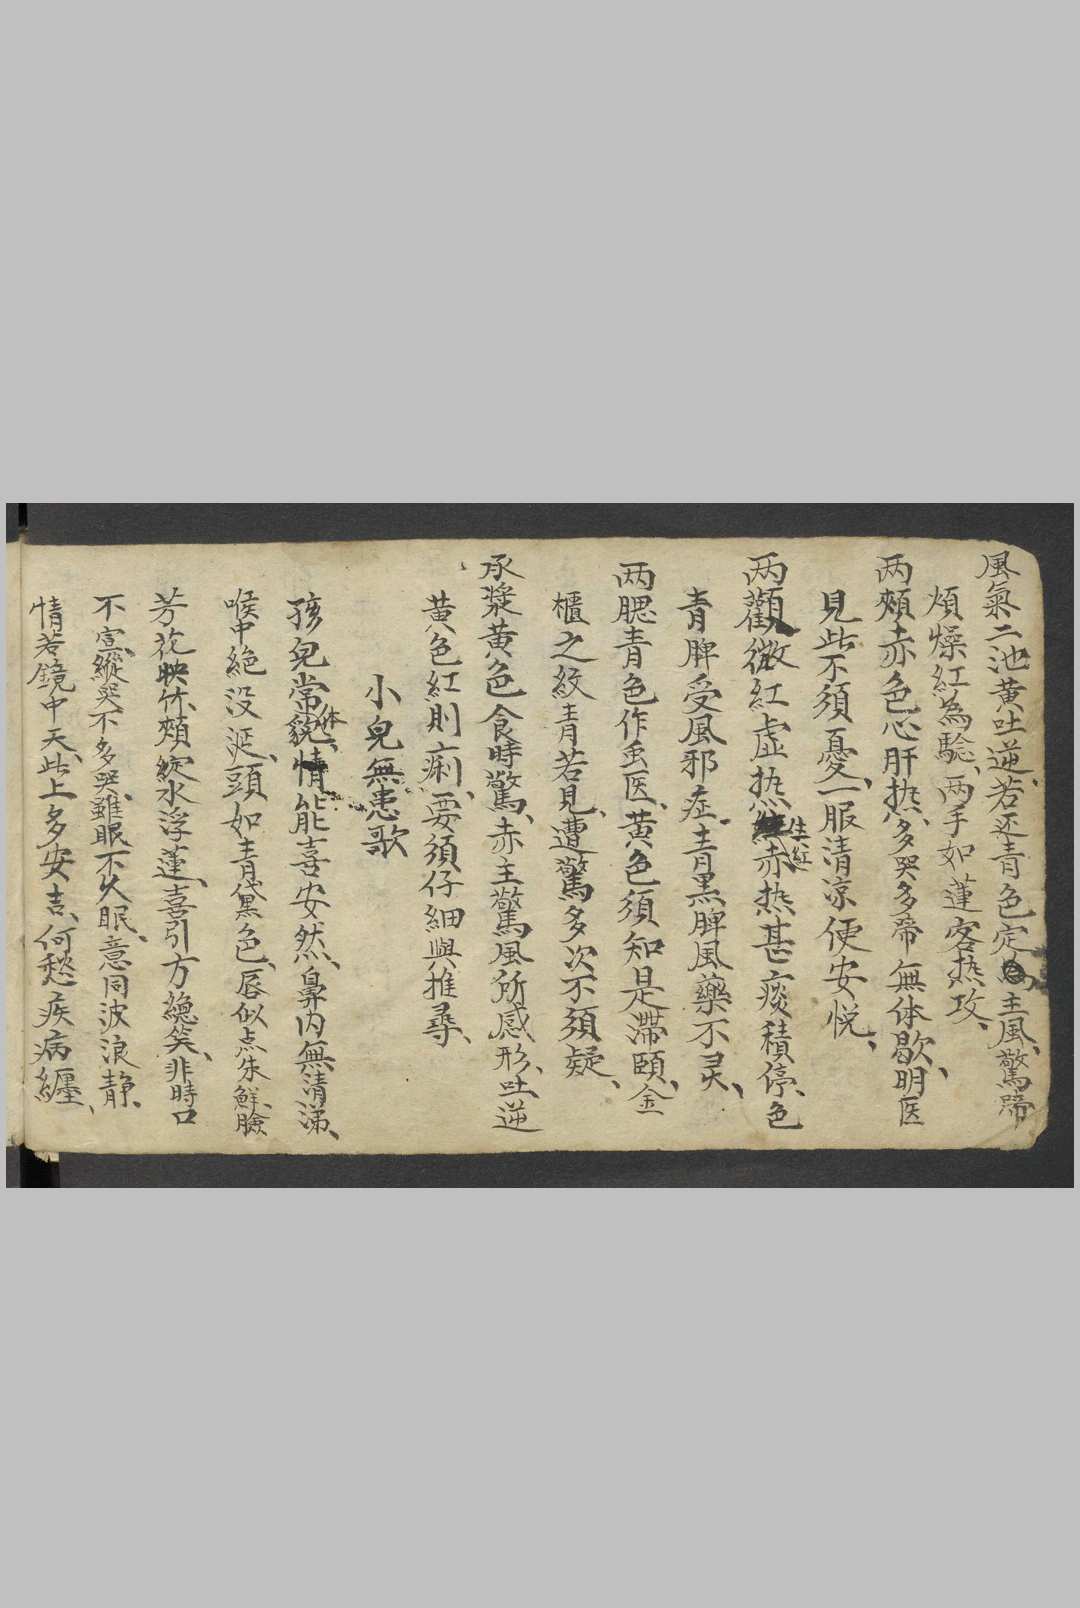 風氣二池黃吐逆、若还青色定主風、驚啼
煩燥紅為驗、两手如蓮客热攻、
两頰赤色心肝热、多哭多啼無休歇、明医
見此不須憂、一服清凉便安悦、
两顴微紅虚热生紅赤热甚痰積停、色
青脾受風邪症、青黑脾風藥不灵、
两腮青色作虫医、黃色須知是滯頤、金
櫃之紋青若見、遭驚多次不須疑、
承漿黃色食時驚、赤主驚風所感形、吐逆
黃色紅則痢、要須仔細與推尋、
小皃無患歌
孩皃常貌体情能喜安然、鼻内無清涕、
喉中絶没涎、頭如青黛色、唇似点朱鮮、臉
芳花映竹、頰綻水浮蓮、喜引方纔笑、非時口
不宣、縱哭不多哭、雖眠不久眠、意同波浪静、
情若鏡中天、此上多安吉、何愁疾病纒、